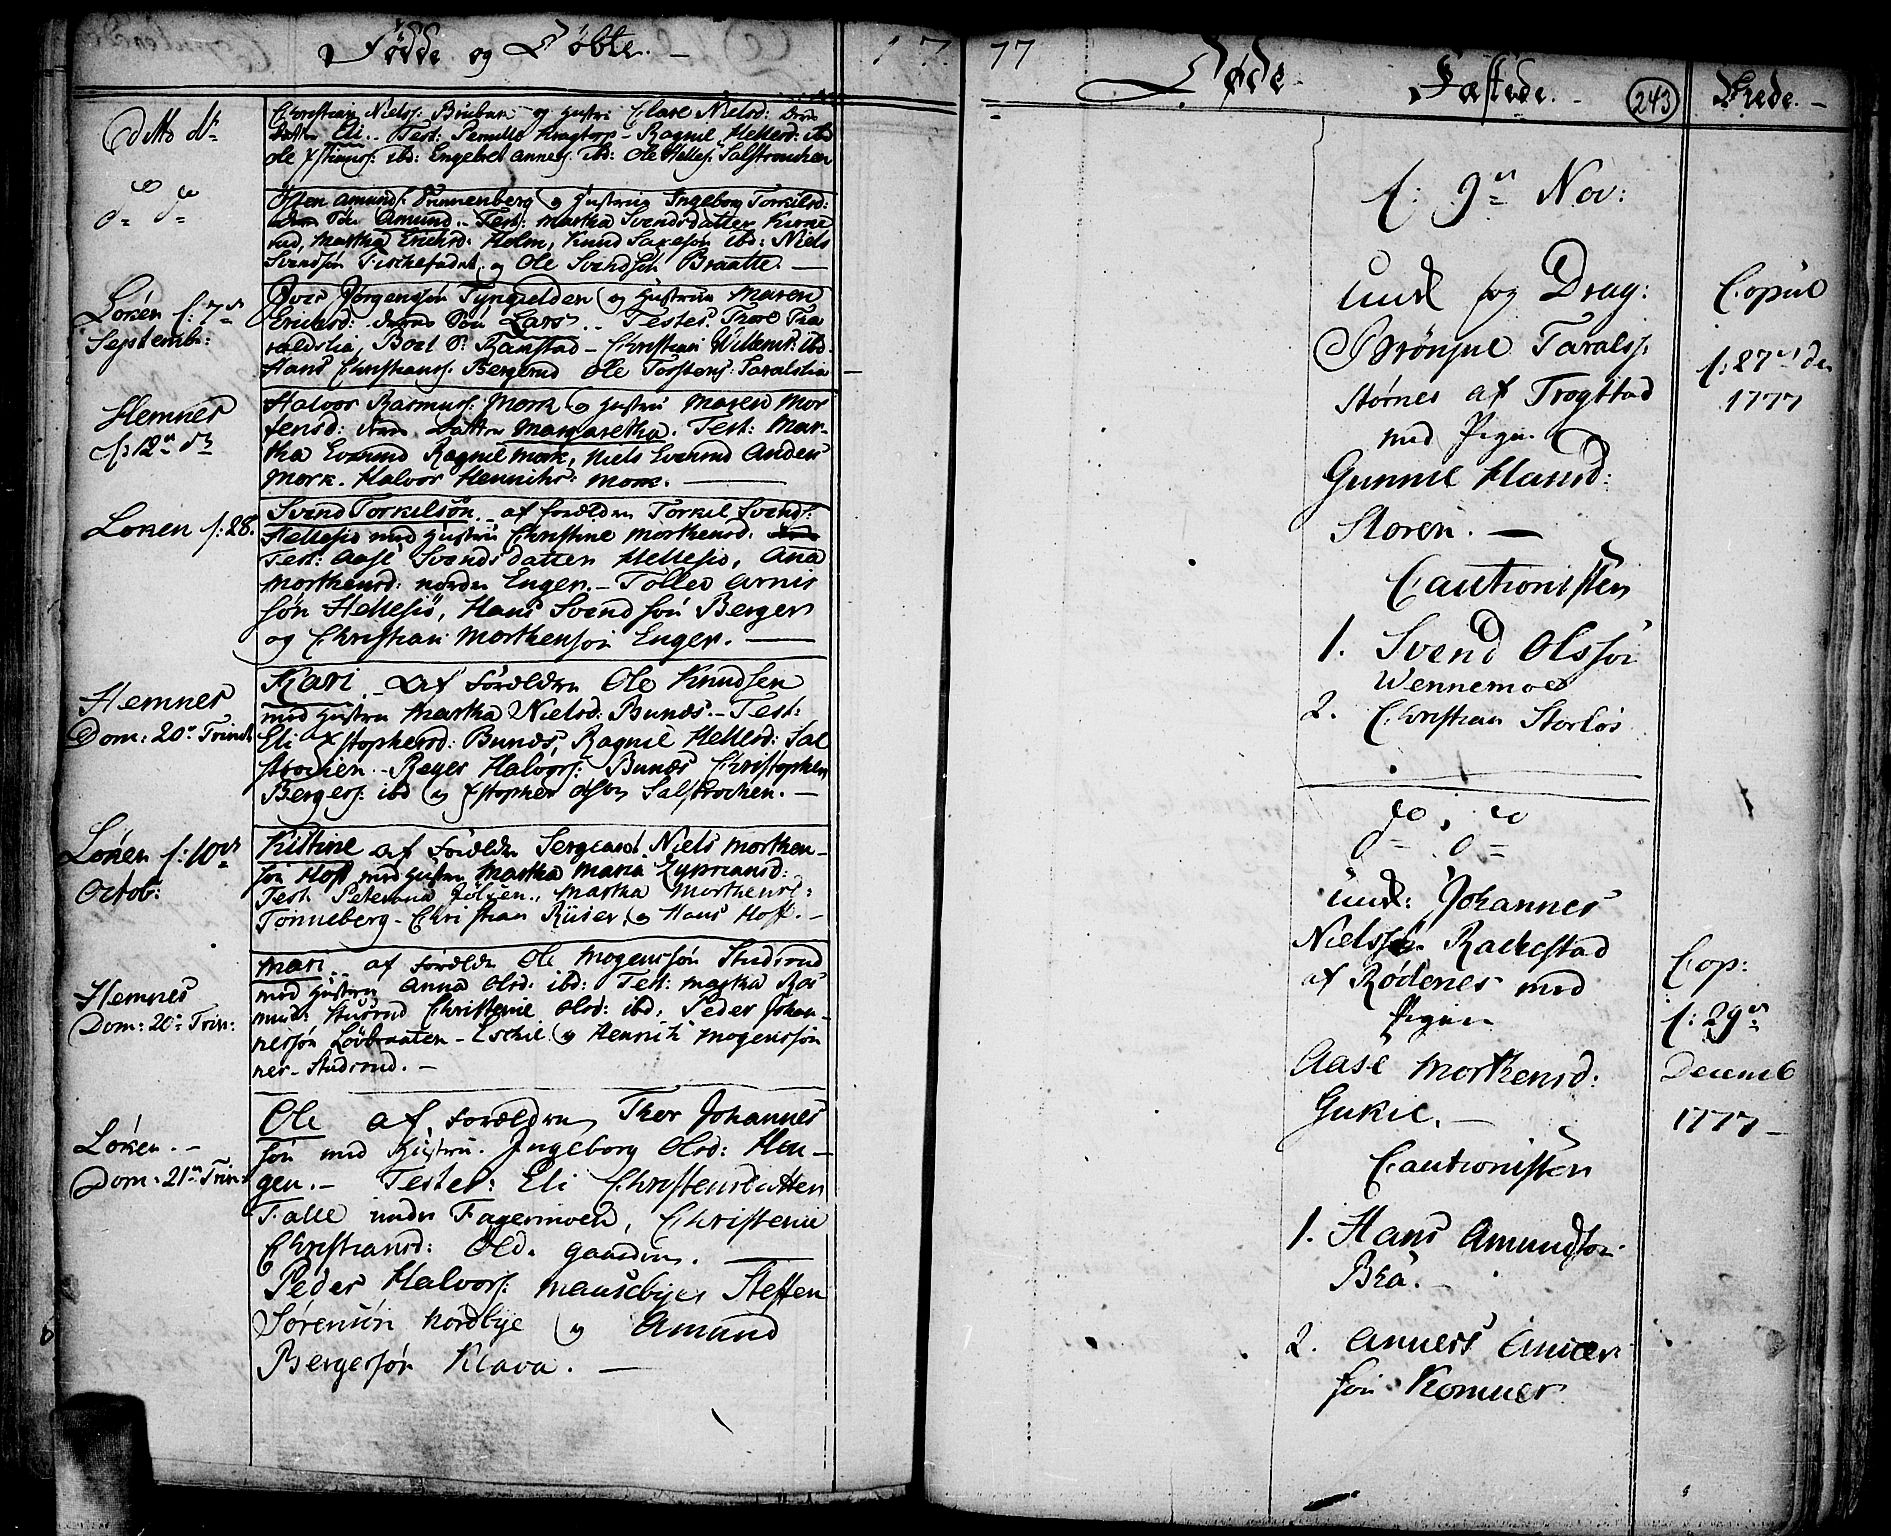 Födde og Döbte. 
1777
Döde
Fæstede.
243
Viede.
Ditto do
Christian Nielss: og hustru Clare Nielsd: deres
datter Eli. Test: Pernille Kragtorp - Ragnil Hellesd: ibd
Ole Xstianss: ibd: Engebret Anness: ibd: Ole Helless: Salstrouchen
do do
Östen Amunds: Sunnenberg og hustrue Ingeborg Torkilsd:
Sön Amund. Test: Martha Svendsdatter Kirne
rud, Martha Ericksd: Holm, Knud Saxesön ibd: Niels
Svendsön og Ole Svendsön Braatte.
Löken f: 7de
Septembr:
Iver Jörgensön Tyngelden og hustrue Maren
Ericksd: deres Sön Lars. Testes. Thore Tha
raldslia, Boel P: Ramstad - Christian Willems: ibd.
Hans Christianss: Bergerud Ole Torstens: Taralslia
Hemnes
f: 12te do
Halvor Rasmuss: Mork og hustru Maren Mor
tensd: deres datter Margaretha. Test: Mar-
tha Evenrud Ragnil Mork, Niels Evenrud Anders
Mork. Halvor Henrichs: Mork.
Löken f: 28.
Svend Torkilsön af forældre Torkil Svends:
Hellesiö med hustru Christine Morthensd.
Test: Aase Svendsdatter Hellesiö, Ana
Morthensd: nordre Enger - Tollev Arnis
sön Hellesiö, Hans Svendsön Berger
og Christian Morthensön Enger.
Hemnes
Dom: 20de Trinit
Kari af forældre Ole Knudsen
med hustru Martha Nielsd: Bunæs. Test:
Eli Xstophersd: Bunæs, Ragnil Hellesd: Sal
strochen - Reyer Halvors: Bunæs Christopher
Bergers: ibd og Xstopher Olsen Salstrochen.
Löken f: 10de
Octob:
Kistine af forældre Sergeant Niels Morthen-
sön Hoff med hustru Martha Maria Zyprriansd:
Test Peternna Martha Morthensd:
Tönneberg - Christian Riiser, og Hans Hoff.
Hemnes
Dom: 20de Trin:
Mari af forældre Ole Mogensön Studsrud
med hustru Anna Olsd: ibd: Test: Martha Ras
musd: Studsrud Christenie Olsd: ibd, Peder Johan-
nessön Lövbraaten - Eschil og Henrich Mogenssön
ner - Studsrud.
Löken.
Dom: 21de Trinit
Ole af forældre Thor Johannes
sön med hustru Ingeborg Olsd: Hen-
gen. Testes: Eli Christensdatter
Falle under Fagermoen, Christenie
Christiansd: Gaarden.
Peder Halvors: Mansebyes Steffen
Sörensön Nordbye og Amund
Bergersön Klava.
f: 9de Nov:
Unk og Drag:
Brönjul Taralss.
Störnes af Trogstad
med Pigen
Gunnil Hansd:
Storen.
Cautionister
1. Svend Olssön
Wennemoe
2. Christian Storlös
Copul
f: 27de
1777
do, do
Unk: Johannes
Nielssön Rackestad
af Rödenes med
Pigen
Aase Morthensd:
Gukie.
Cautionister
1. Hans Amundsön
Braa.
2. Anners Anner
sön Komner
Cop:
f: 29de
Decemb
1777